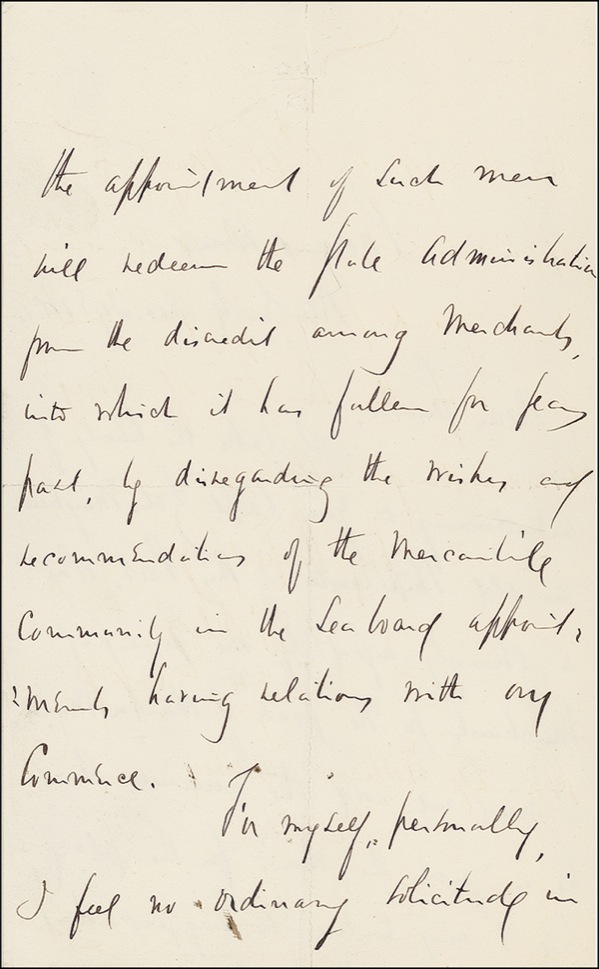 the appointment of such men
will redeem the State Administration
from the discredit among Merchants,
into which it has fallen for years
past, by disregarding the wishes and
recommendations of the Mercantile
Community in the Seaboard appoint:
:ments having relations with our
Commerce.
For myself, personally,
I feel no ordinary solicitude in